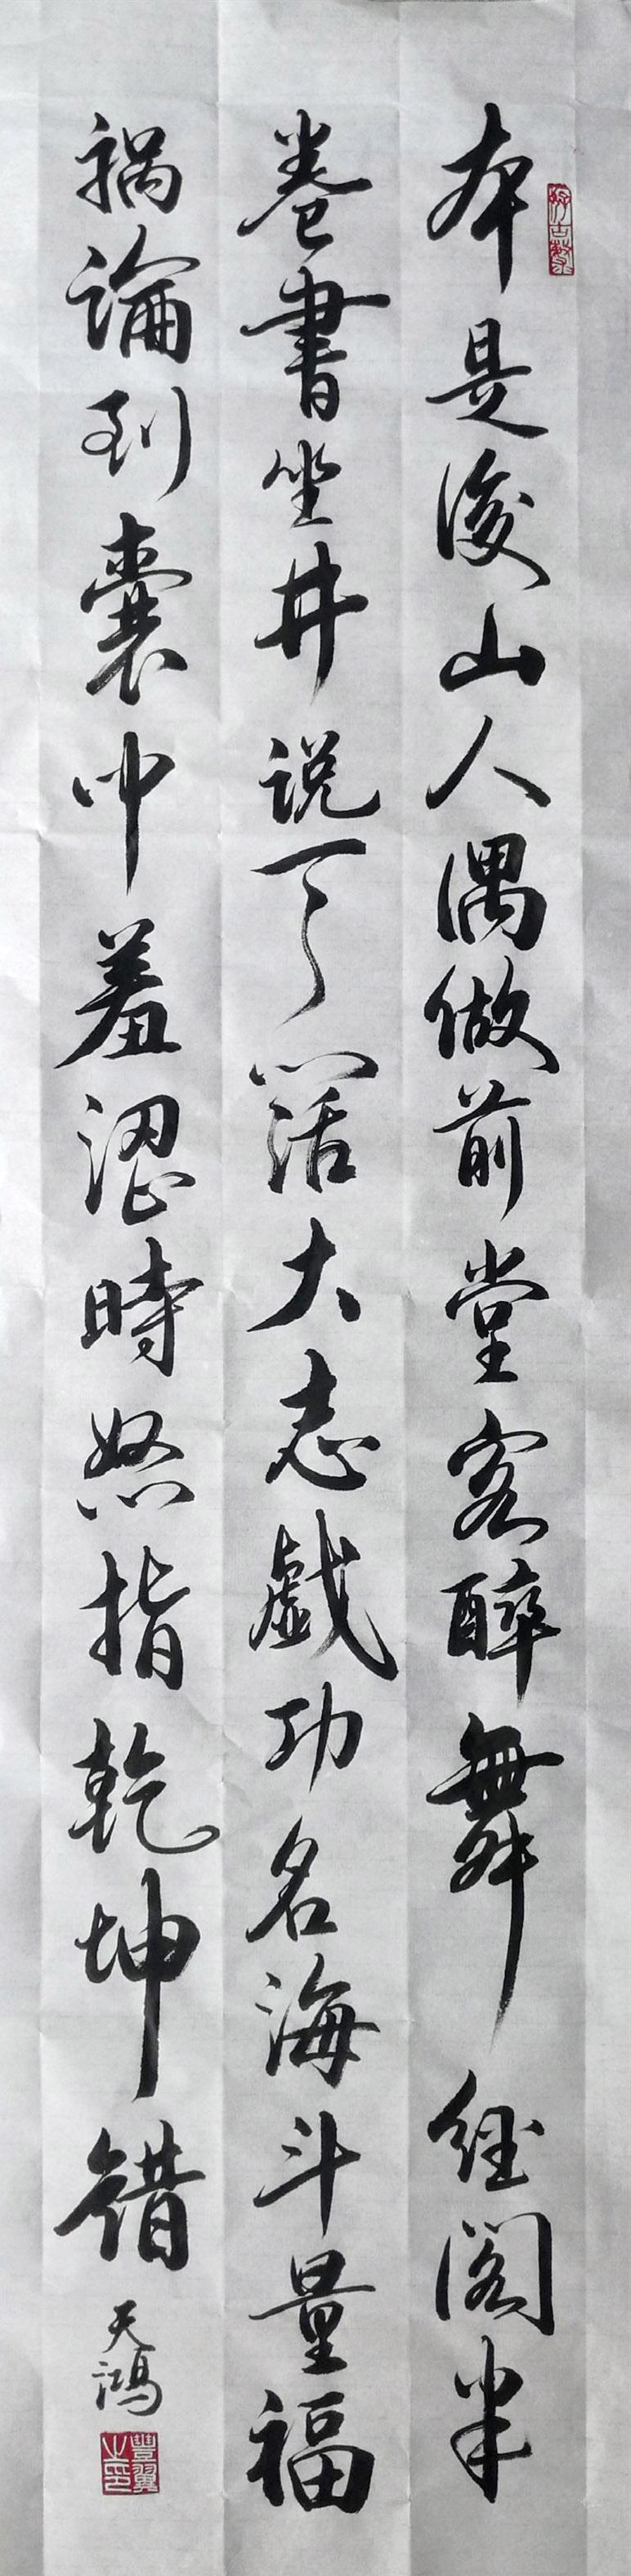 本是後山人偶做前堂客醉舞經阁半
卷書坐井说天阔大志戲功名海斗量福
禍論到囊中羞澀時怒指乾坤錯
天鴻